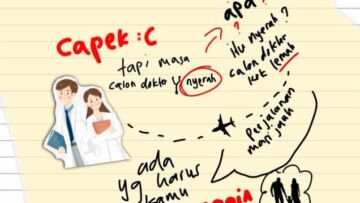 capek :c
tapi masa
calon dokter
nyerah
apa
?
?
?
itu nyerah
calon dokter
kok lemah
Perjalanan
masi jauh
ada
yg harus
kamu